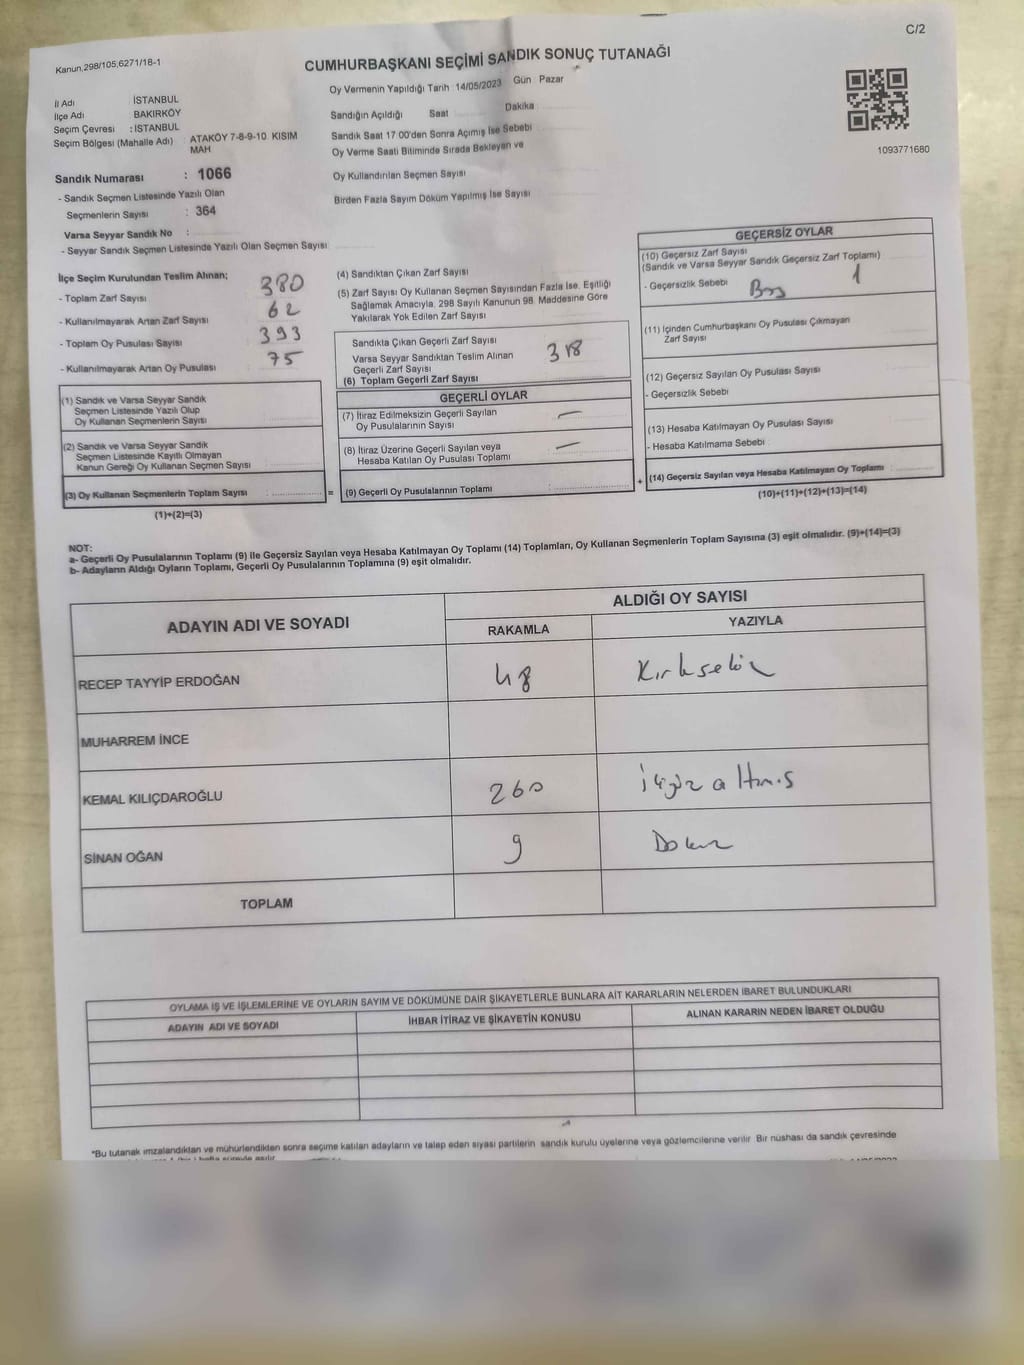 C/2
Kanun.298/105,6271/18-1
CUMHURBAŞKANI SEÇİMİ SANDIK SONUÇ TUTANAĞI
Oy Vermenin Yapıldığı Tarih 14/05/2023 Gün Pazar
İl Adı İSTANBUL
İlçe Adı BAKIRKÖY
Seçim Çevresi : İSTANBUL
Seçim Bölgesi (Mahalle Adı) : ATAKÖY 7-8-9-10 KISIM
MAH
Sandığın Açıldığı Saat Dakika
Sandık Saat 17 00'den Sonra Açımış İse Sebebi
Oy Verme Saati Bitiminde Sırada Bekleyen ve
Oy Kullandırılan Seçmen Sayısı
Birden Fazla Sayım Döküm Yapılmış İse Sayısı
1093771680
Sandık Numarası : 1066
- Sandık Seçmen Listesinde Yazılı Olan
Seçmenlerin Sayısı : 364
Varsa Seyyar Sandık No :
- Seyyar Sandık Seçmen Listesinde Yazılı Olan Seçmen Sayısı
İlçe Seçim Kurulundan Teslim Alınan;
- Toplam Zarf Sayısı : 380
- Kullanılmayarak Artan Zarf Sayısı : 62
- Toplam Oy Pusulası Sayısı : 393
- Kullanılmayarak Artan Oy Pusulası : 75
(1) Sandık ve Varsa Seyyar Sandık
Seçmen Listesinde Yazılı Olup
Oy Kullanan Seçmenlerin Sayısı
(2) Sandık ve Varsa Seyyar Sandık
Seçmen Listesinde Kayıtlı Olmayan
Kanun Gereği Oy Kullanan Seçmen Sayısı
(3) Oy Kullanan Seçmenlerin Toplam Sayısı :
(1)+(2)=(3)
(4) Sandıktan Çıkan Zarf Sayısı
(5) Zarf Sayısı Oy Kullanan Seçmen Sayısından Fazla İse, Eşitliği
Sağlamak Amacıyla, 298 Sayılı Kanunun 98. Maddesine Göre
Yakılarak Yok Edilen Zarf Sayısı
Sandıkla Çıkan Geçerli Zarf Sayısı
Varsa Seyyar Sandıktan Teslim Alınan
Geçerli Zarf Sayısı
318
(6) Toplam Geçerli Zarf Sayısı
GEÇERLİ OYLAR
(7) İtiraz Edilmeksizin Geçerli Sayılan
Oy Pusulalarının Sayısı : —
(8) İtiraz Üzerine Geçerli Sayılan veya
Hesaba Katılan Oy Pusulası Toplamı : —
= (9) Geçerli Oy Pusulalarının Toplamı :
GEÇERSİZ OYLAR
(10) Geçersiz Zarf Sayısı
(Sandık ve Varsa Seyyar Sandık Geçersiz Zarf Toplamı)
- Geçersizlik Sebebi Boş 1
(11) İçinden Cumhurbaşkanı Oy Pusulası Çıkmayan
Zarf Sayısı
(12) Geçersiz Sayılan Oy Pusulası Sayısı
- Geçersizlik Sebebi
(13) Hesaba Katılmayan Oy Pusulası Sayısı
- Hesaba Katılmama Sebebi
+ (14) Geçersiz Sayılan veya Hesaba Katılmayan Oy Toplamı :
(10)+(11)+(12)+(13)=(14)
NOT:
a- Geçerli Oy Pusulalarının Toplamı (9) ile Geçersiz Sayılan veya Hesaba Katılmayan Oy Toplamı (14) Toplamları, Oy Kullanan Seçmenlerin Toplam Sayısına (3) eşit olmalıdır. (9)+(14)=(3)
b- Adayların Aldığı Oyların Toplamı, Geçerli Oy Pusulalarının Toplamına (9) eşit olmalıdır.
ADAYIN ADI VE SOYADI ALDIĞI OY SAYISI
RAKAMLA YAZIYLA
RECEP TAYYİP ERDOĞAN 48 Kırksekiz
MUHARREM İNCE
KEMAL KILIÇDAROĞLU 260 İkiyüzaltmış
SİNAN OĞAN 9 Dokuz
TOPLAM
OYLAMA İŞ VE İŞLEMLERİNE VE OYLARIN SAYIM VE DÖKÜMÜNE DAİR ŞİKAYETLERLE BUNLARA AİT KARARLARIN NELERDEN İBARET BULUNDUKLARI
ADAYIN ADI VE SOYADI İHBAR İTİRAZ VE ŞİKAYETİN KONUSU ALINAN KARARIN NEDEN İBARET OLDUĞU
*Bu tutanak imzalandıktan ve mühürlendikten sonra seçime katılan adayların ve talep eden siyasi partilerin sandık kurulu üyelerine veya gözlemcilerine verilir Bir nüshası da sandık çevresinde